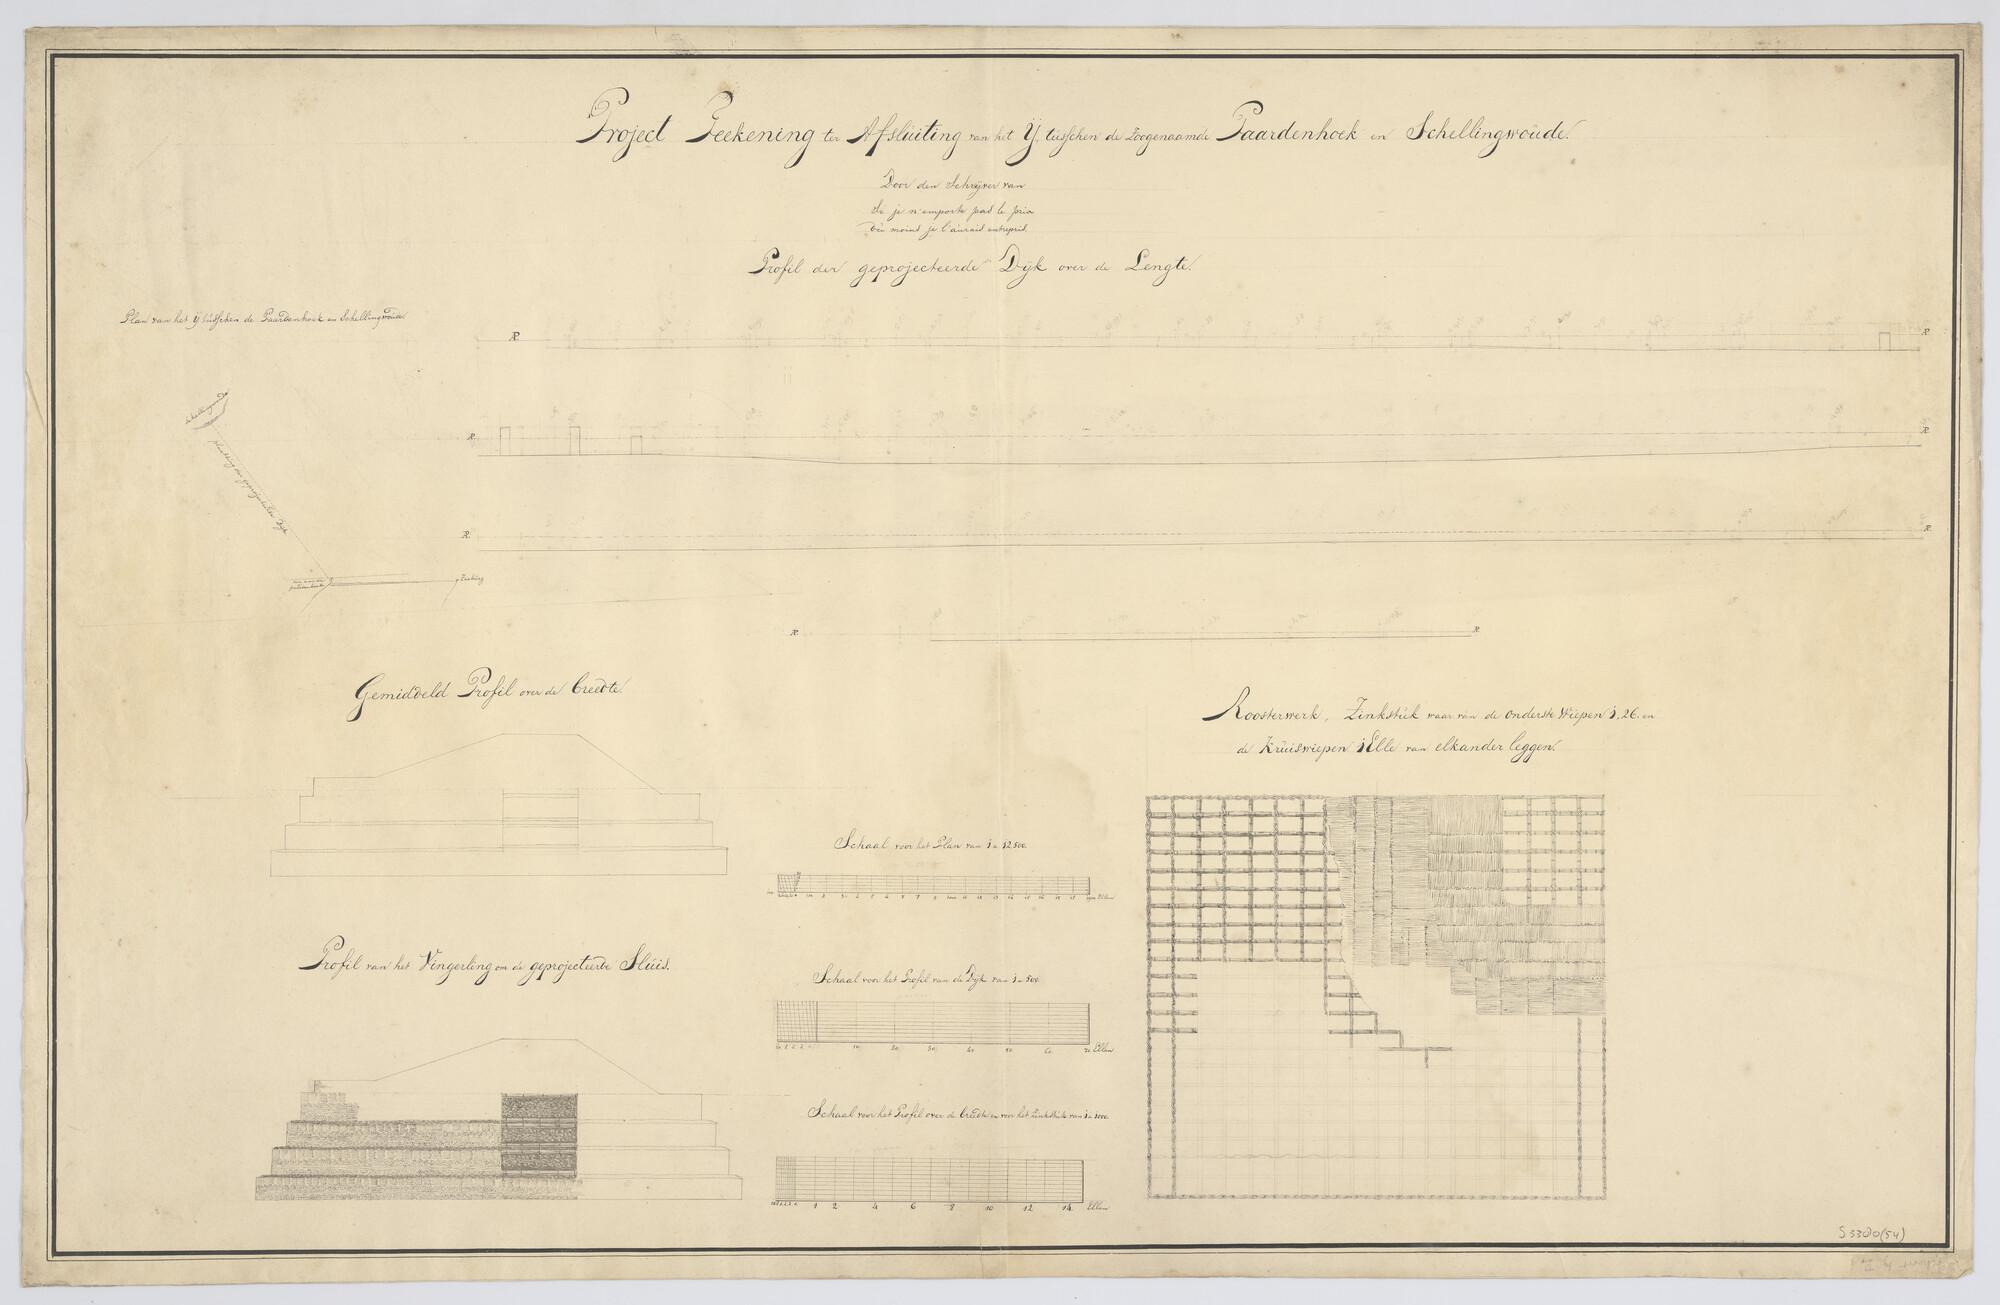 Project Teekening ter Afsluiting van het Ÿ, tusschen de Zoogenaamde Paardenhoek en Schellingwoude.
Door den Schrÿver van
Si je n'emporte pas le prix
du moins je l'aurais entrepris.
Profil der geprojecteerde Dÿk over de Lengte.
Plan van het ÿ tusschen de Paardenhoek en Schellingwoude
AP. AP.
AP. AP.
AP. AP.
AP. AP.
Schellingwoude
geprojecteerde Dÿk
Zeeburg
Gemiddeld Profil over de breedte.
Roosterwerk, Zinkstuk waar van de onderste Wiepen 1,26. en
de Kruiswiepen 1 Elle van elkander leggen.
Schaal voor het Plan van 1 a 12500.
Ellen
Profil van het Vingerling om de geprojecteerde Sluis.
Schaal voor het Profil van de Dÿk van 1 a 500.
10. 20. 30. 40. 50. 60. 70 Ellen
Schaal voor het Profil over de breedte en voor het Zinkstuk van 1 a 1000
1 2 4 6 8 10 12 14 Ellen
S 3380(54)